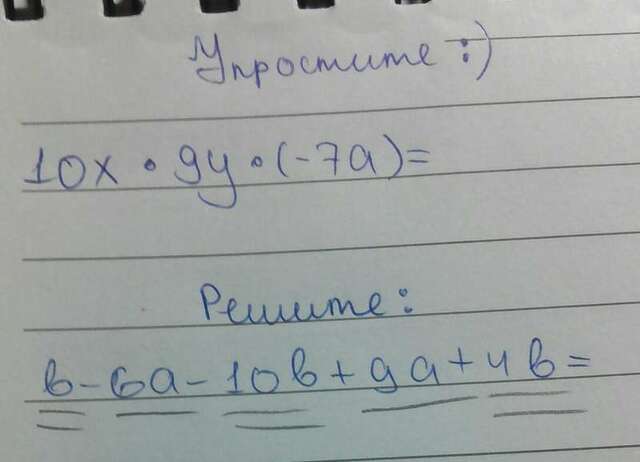 Упростите :)
10x • 9y • (-7a) =
Решите:
в - 6a - 10в + 9a + 4в =